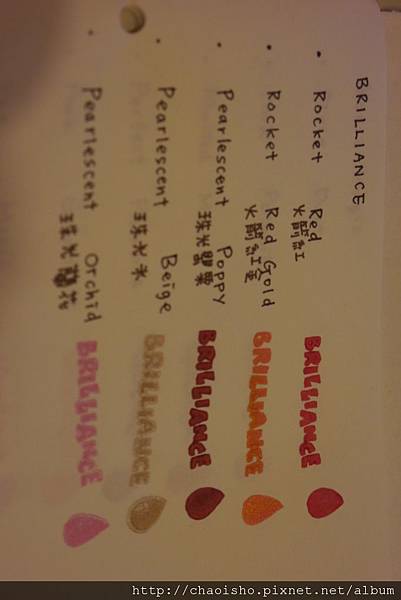 BRILLIANCE
• Rocket Red BRILLIANCE
火箭紅
• Rocket Red Gold BRILLIANCE
火箭紅金
• Pearlescent Poppy BRILLIANCE
珠光罌粟
• Pearlescent Beige BRILLIANCE
珠光米
• Pearlescent Orchid BRILLIANCE
珠光蘭花
http://chaoisho.pixnet.net/album